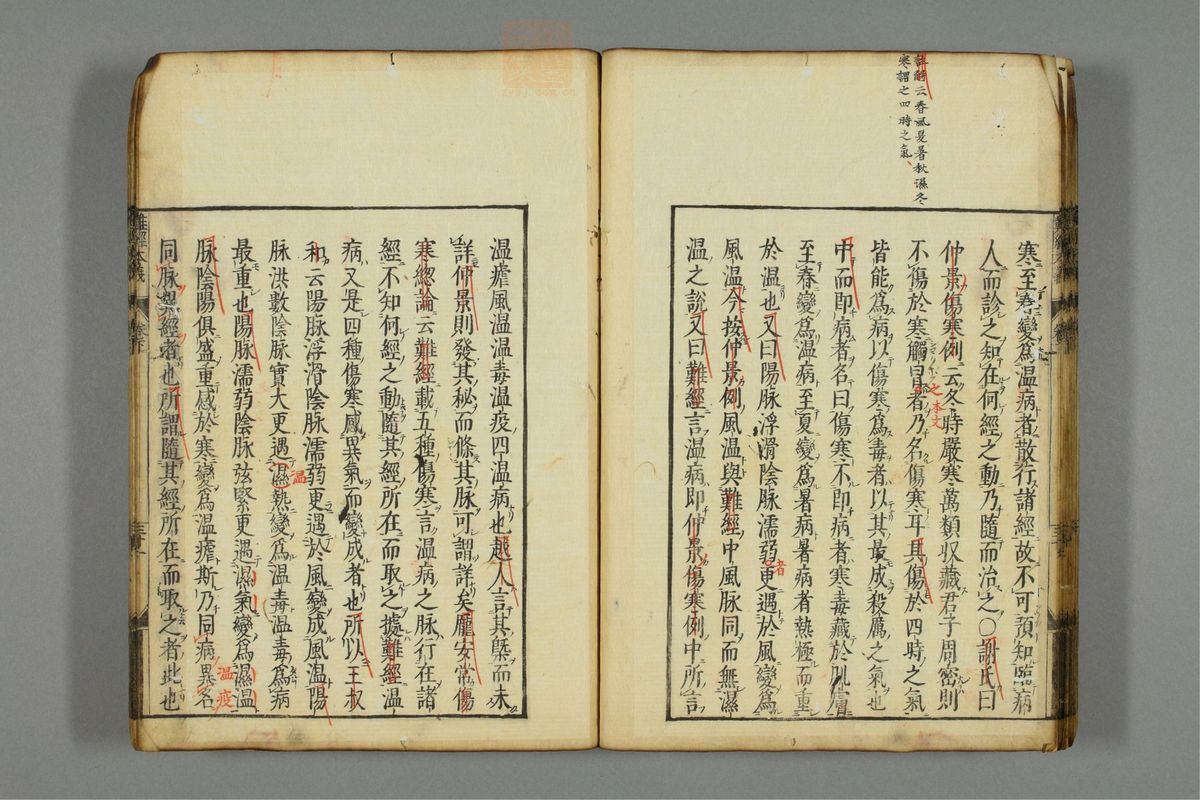 註解云春風夏暑秋濕冬
寒謂之四時之氣
寒至春變爲温病者散行諸經故不可預知臨病
人而診之知在何經之動乃隨而治之○謝氏曰
仲景傷寒例云冬時嚴寒萬類収藏君子周密則
不傷於寒觸冒者乃名傷寒耳其傷於四時之氣
之本文
皆能爲病以傷寒爲毒者以其最成殺厲之氣也
中而即病者名曰傷寒不即病者寒毒藏於肌膚
至春變爲温病至夏變爲暑病暑病者熱極而重
於温也又曰陽脉浮滑陰脉濡弱更遇於風變爲
者
風温今按仲景例風温與難經中風脉同而無濕
温之說又曰難經言温病即仲景傷寒例中所言
温瘧風温温毒温疫四温病也越人言其槩而未
詳仲景則發其秘而條其脉可謂詳矣龐安常傷
寒総論云難經載五種傷寒言温病之脉行在諸
經不知何經之動隨其經所在而取之據難經温
病又是四種傷寒感異氣而變成者也所以王叔
和云陽脉浮滑陰脉濡弱更遇於風變成風温陽
脉洪數陰脉實大更遇濕熱變爲温毒温毒爲病
温
最重也陽脉濡弱陰脉弦緊更遇濕氣變爲濕温
脉陰陽俱盛重感於寒變爲温瘧斯乃同病異名
温疫
同脉異經者也所謂隨其經所在而取之者此也
難經本義